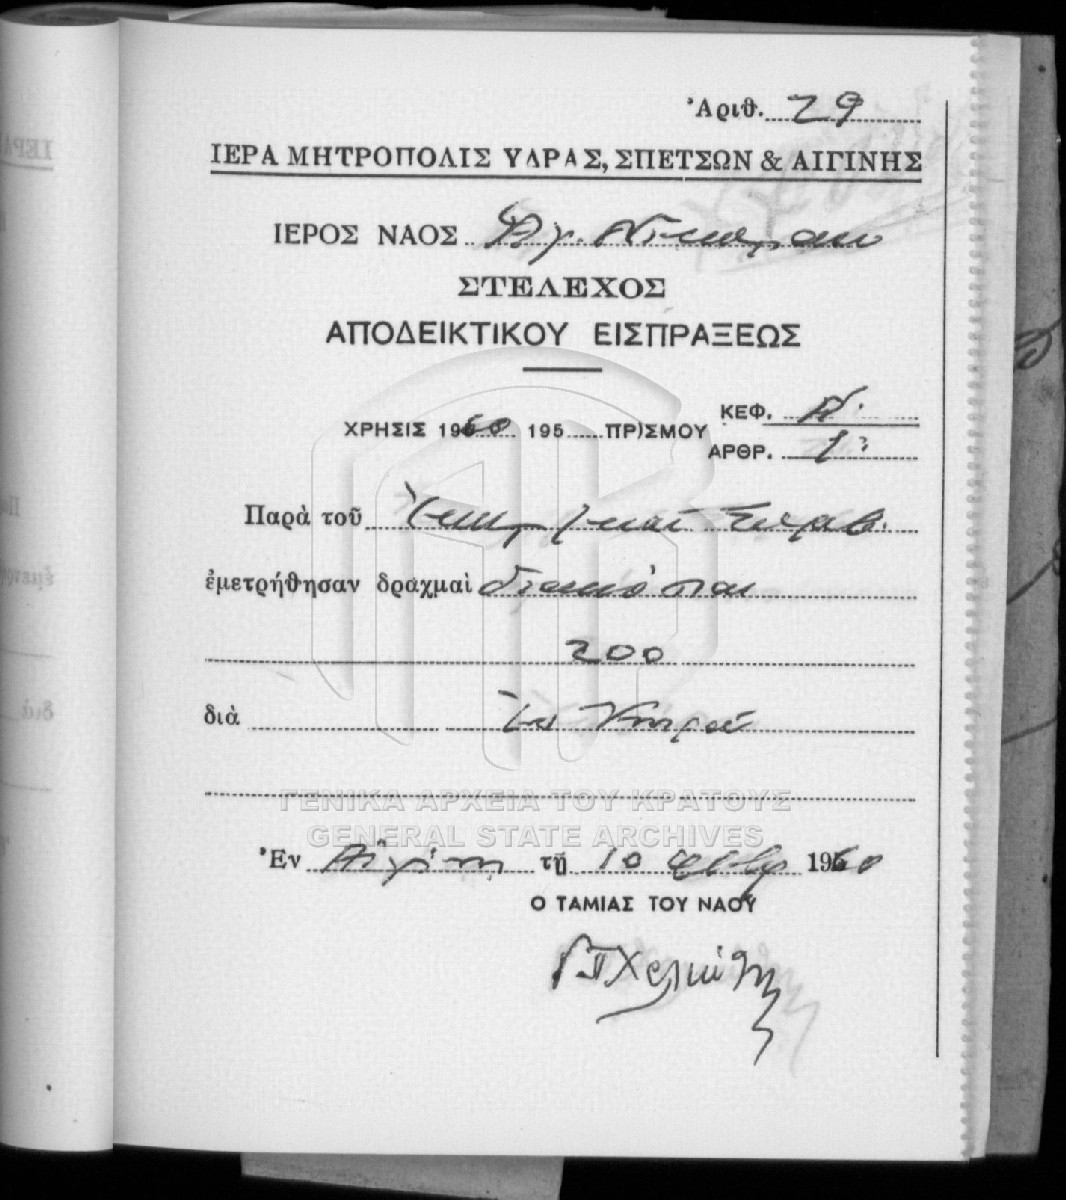 Ἀριθ. 29
ΙΕΡΑ ΜΗΤΡΟΠΟΛΙΣ ΥΔΡΑΣ, ΣΠΕΤΣΩΝ & ΑΙΓΙΝΗΣ
ΙΕΡΟΣ ΝΑΟΣ Ἁγ. Νικολάου
ΣΤΕΛΕΧΟΣ
ΑΠΟΔΕΙΚΤΙΚΟΥ ΕΙΣΠΡΑΞΕΩΣ
ΧΡΗΣΙΣ 1960 195 ΠΡ)ΣΜΟΥ
ΚΕΦ. Α΄
ΑΡΘΡ. 1
Παρὰ τοῦ
ἐμετρήθησαν δραχμαὶ διακόσιαι
200
διὰ
ΓΕΝΙΚΑ ΑΡΧΕΙΑ ΤΟΥ ΚΡΑΤΟΥΣ
GENERAL STATE ARCHIVES
Ἐν Αἰγίνῃ τῇ 10 1960
Ο ΤΑΜΙΑΣ ΤΟΥ ΝΑΟΥ